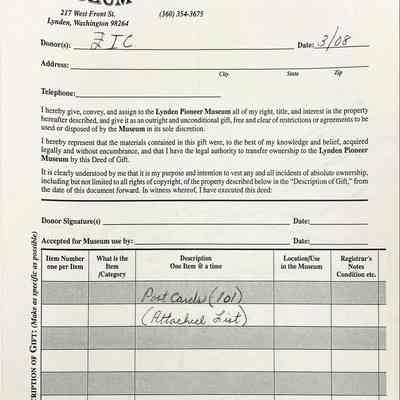 MUSEUM
217 West Front St. (360) 354-3675
Lynden, Washington 98264
Donor(s): FIC Date: 3/08
Address:
City State Zip
Telephone:
I hereby give, convey, and assign to the Lynden Pioneer Museum all of my right, title, and interest in the property
hereafter described, and give it as an outright and unconditional gift, free and clear of restrictions or agreements to be
used or disposed of by the Museum in its sole discretion.
I hereby represent that the materials contained in this gift were, to the best of my knowledge and belief, acquired
legally and without encumbrance, and that I have the legal authority to transfer ownership to the Lynden Pioneer
Museum by this Deed of Gift.
It is clearly understood by me that it is my purpose and intention to vest any and all incidents of absolute ownership,
including but not limited to all rights of copyright, of the property described below in the "Description of Gift," from
the date of this document forward. In witness whereof, I have executed this deed:
Donor Signature(s) Date:
Accepted for Museum use by: Date:
Item Number one per Item
What is the Item /Category
Description One Item @ a time
Location/Use in the Museum
Registrar's Notes Condition etc.
Post Cards (101)
(Attached List)
CRIPTION OF GIFT: (Make as specific as possible)